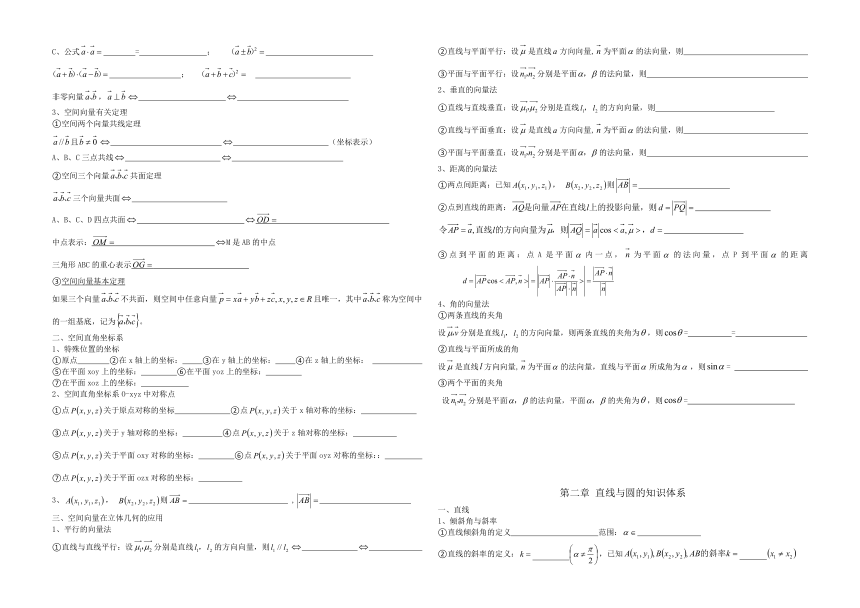 C、公式 a·a = ________=________________；  (a±b)² = ________________
(a+b)·(a−b) = ________________；  (a+b+c)² = ________________
非零向量 a、b，a⊥b ⇔ ________________ ⇔ ________________
3、空间向量有关定理
①空间两个向量共线定理
a//b 且 b≠0 ⇔ ________________ ⇔ ________________（坐标表示）
A、B、C 三点共线 ⇔ ________________ ⇔ ________________
②空间三个向量共面定理
a、b、c 三个向量共面 ⇔ ________________
A、B、C、D 四点共面 ⇔ ________________ ⇔ OD = ________________
中点表示：OM = ________________ ⇔ M 是 AB 的中点
三角形 ABC 的重心表示 OG = ________________
③空间向量基本定理
如果三个向量 a、b、c 不共面，则空间中任意向量 p = xa + yb + zc, x, y, z ∈ R 且唯一，其中 a、b、c 称为空间中
的一组基底，记为 {a、b、c}。
二、空间直角坐标系
1、特殊位置的坐标
①原点______②在 x 轴上的坐标：____③在 y 轴上的坐标：____④在 z 轴上的坐标： ________
⑤在平面 xoy 上的坐标：______⑥在平面 yoz 上的坐标：______
⑦在平面 xoz 上的坐标：________
2、空间直角坐标系 O-xyz 中对称点
①点 P(x, y, z) 关于原点对称的坐标__________②点 P(x, y, z) 关于 x 轴对称的坐标：__________
③点 P(x, y, z) 关于 y 轴对称的坐标：________④点 P(x, y, z) 关于 z 轴对称的坐标：________
⑤点 P(x, y, z) 关于平面 oxy 对称的坐标：______⑥点 P(x, y, z) 关于平面 oyz 对称的坐标：：________
⑦点 P(x, y, z) 关于平面 ozx 对称的坐标：________
3、A(x₁, y₁, z₁)， B(x₂, y₂, z₂) 则 AB = ________________，|AB| = ________________
三、空间向量在立体几何的应用
1、平行的向量法
①直线与直线平行：设 μ₁、μ₂ 分别是直线 l₁，l₂ 的方向向量，则 l₁ // l₂ ⇔ __________ ⇔ __________
②直线与平面平行：设 μ 是直线 a 方向向量，n 为平面 α 的法向量，则________________
③平面与平面平行：设 n₁、n₂ 分别是平面 α，β 的法向量，则________________
2、垂直的向量法
①直线与直线垂直：设 μ₁、μ₂ 分别是直线 l₁，l₂ 的方向向量，则________________
②直线与平面垂直：设 μ 是直线 a 方向向量，n 为平面 α 的法向量，则________________
③平面与平面垂直：设 n₁、n₂ 分别是平面 α，β 的法向量，则________________
3、距离的向量法
①两点间距离：已知 A(x₁, y₁, z₁)， B(x₂, y₂, z₂) 则 |AB| = ________________
②点到直线的距离：AQ 是向量 AP 在直线 l 上的投影向量，则 d = |PQ| = ________________
令 AP = a, 直线 l 的方向向量为 μ，则 |AQ| = |a| cos < a, μ >，d = ________________
③点到平面的距离：点 A 是平面 α 内一点，n 为平面 α 的法向量，点 P 到平面 α 的距离
d = |AP cos < AP, n >| = |AP · (AP·n)/(|AP|·|n|)| = |AP·n|/|n|
4、角的向量法
①两条直线的夹角
设 μ、v 分别是直线 l₁，l₂ 的方向向量，则两条直线的夹角为 θ，则 cosθ = ________=________
②直线与平面所成的角
设 μ 是直线 l 方向向量，n 为平面 α 的法向量，直线与平面 α 所成角为 α，则 sin α = ________________
③两个平面的夹角
设 n₁、n₂ 分别是平面 α，β 的法向量，平面 α，β 的夹角为 θ，则 cosθ = ________________
第二章 直线与圆的知识体系
一、直线
1、倾斜角与斜率
①直线倾斜角的定义________________范围：α ∈ ____________
②直线的斜率的定义：k = ________ (α ≠ π/2)，已知 A(x₁, y₁), B(x₂, y₂), AB 的斜率 k = ______ (x₁ ≠ x₂)